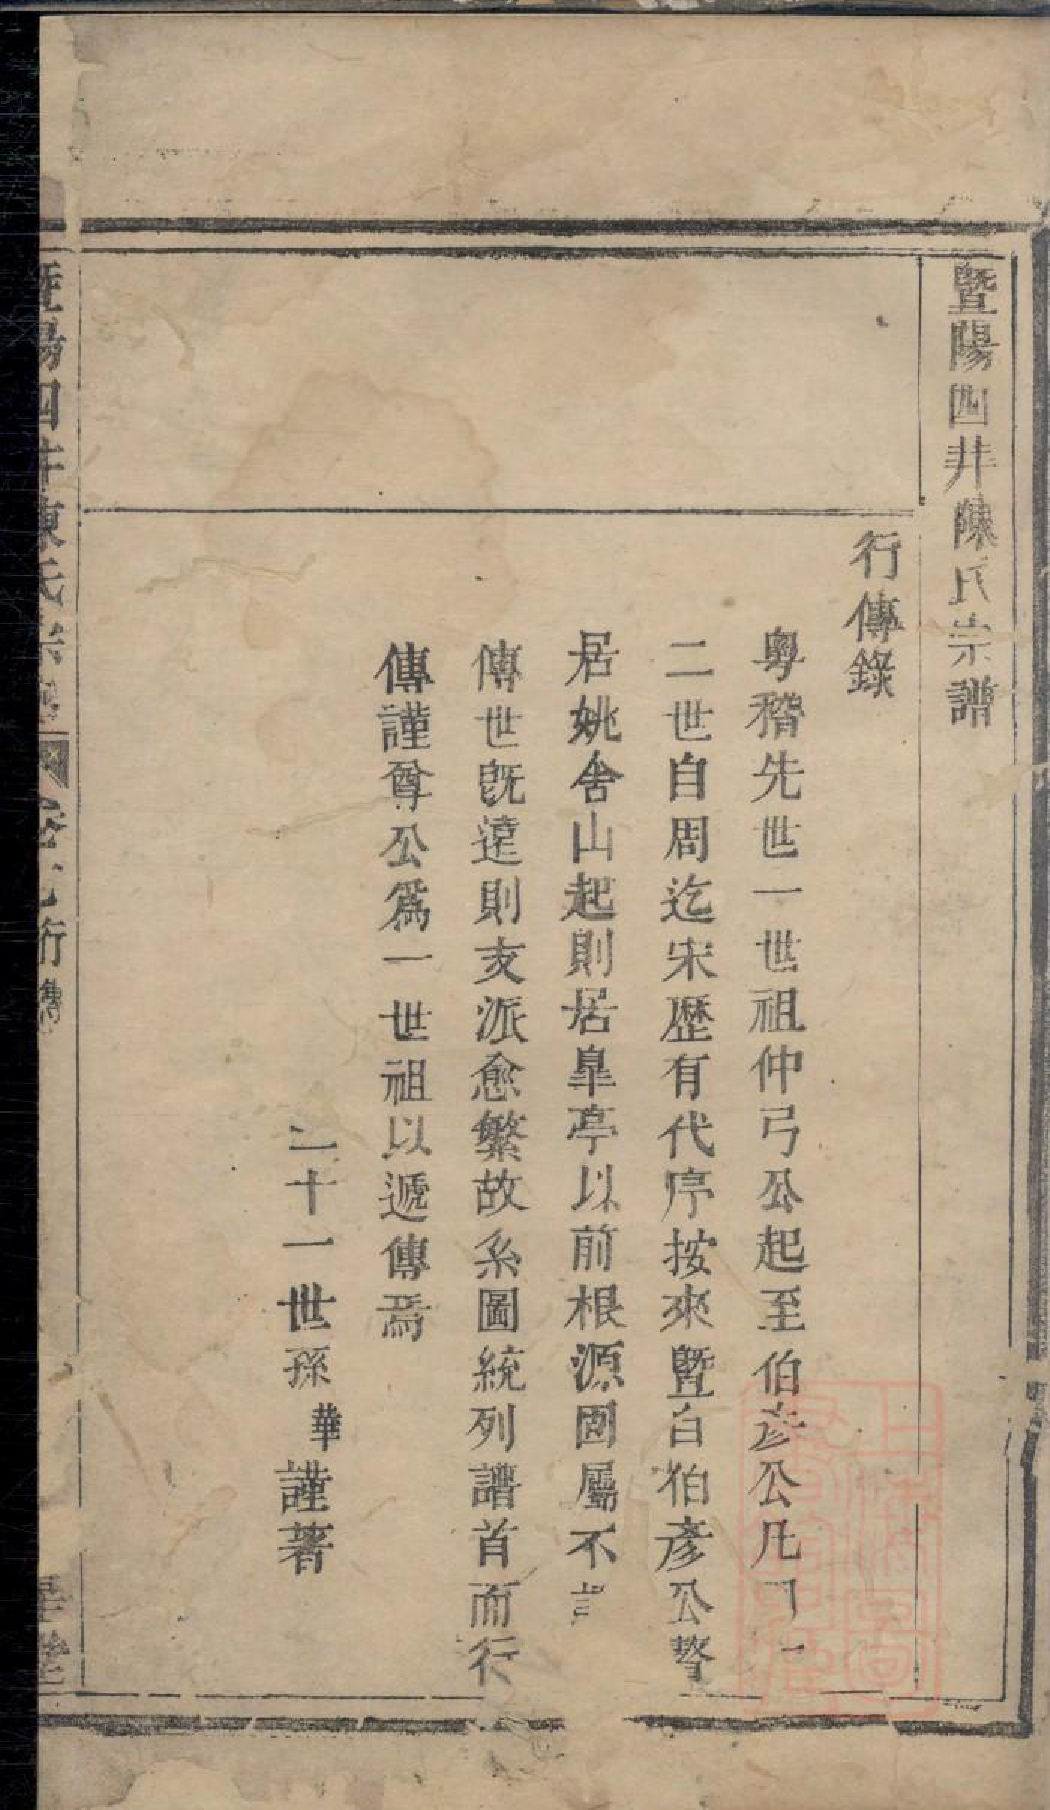 暨陽四井陳氏宗譜
行傳錄
粵稽先世一世祖仲弓公起至伯彥公凡
二世自周迄宋歷有代序按來暨自伯彥公贅
居姚舍山起則居皐亭以前根源固屬不
傳世旣遠則支派愈繁故系圖統列譜首而行
傳謹尊公爲一世祖以遞傳焉
二十一世孫華謹著
暨陽四井陳氏宗譜 卷 行傳